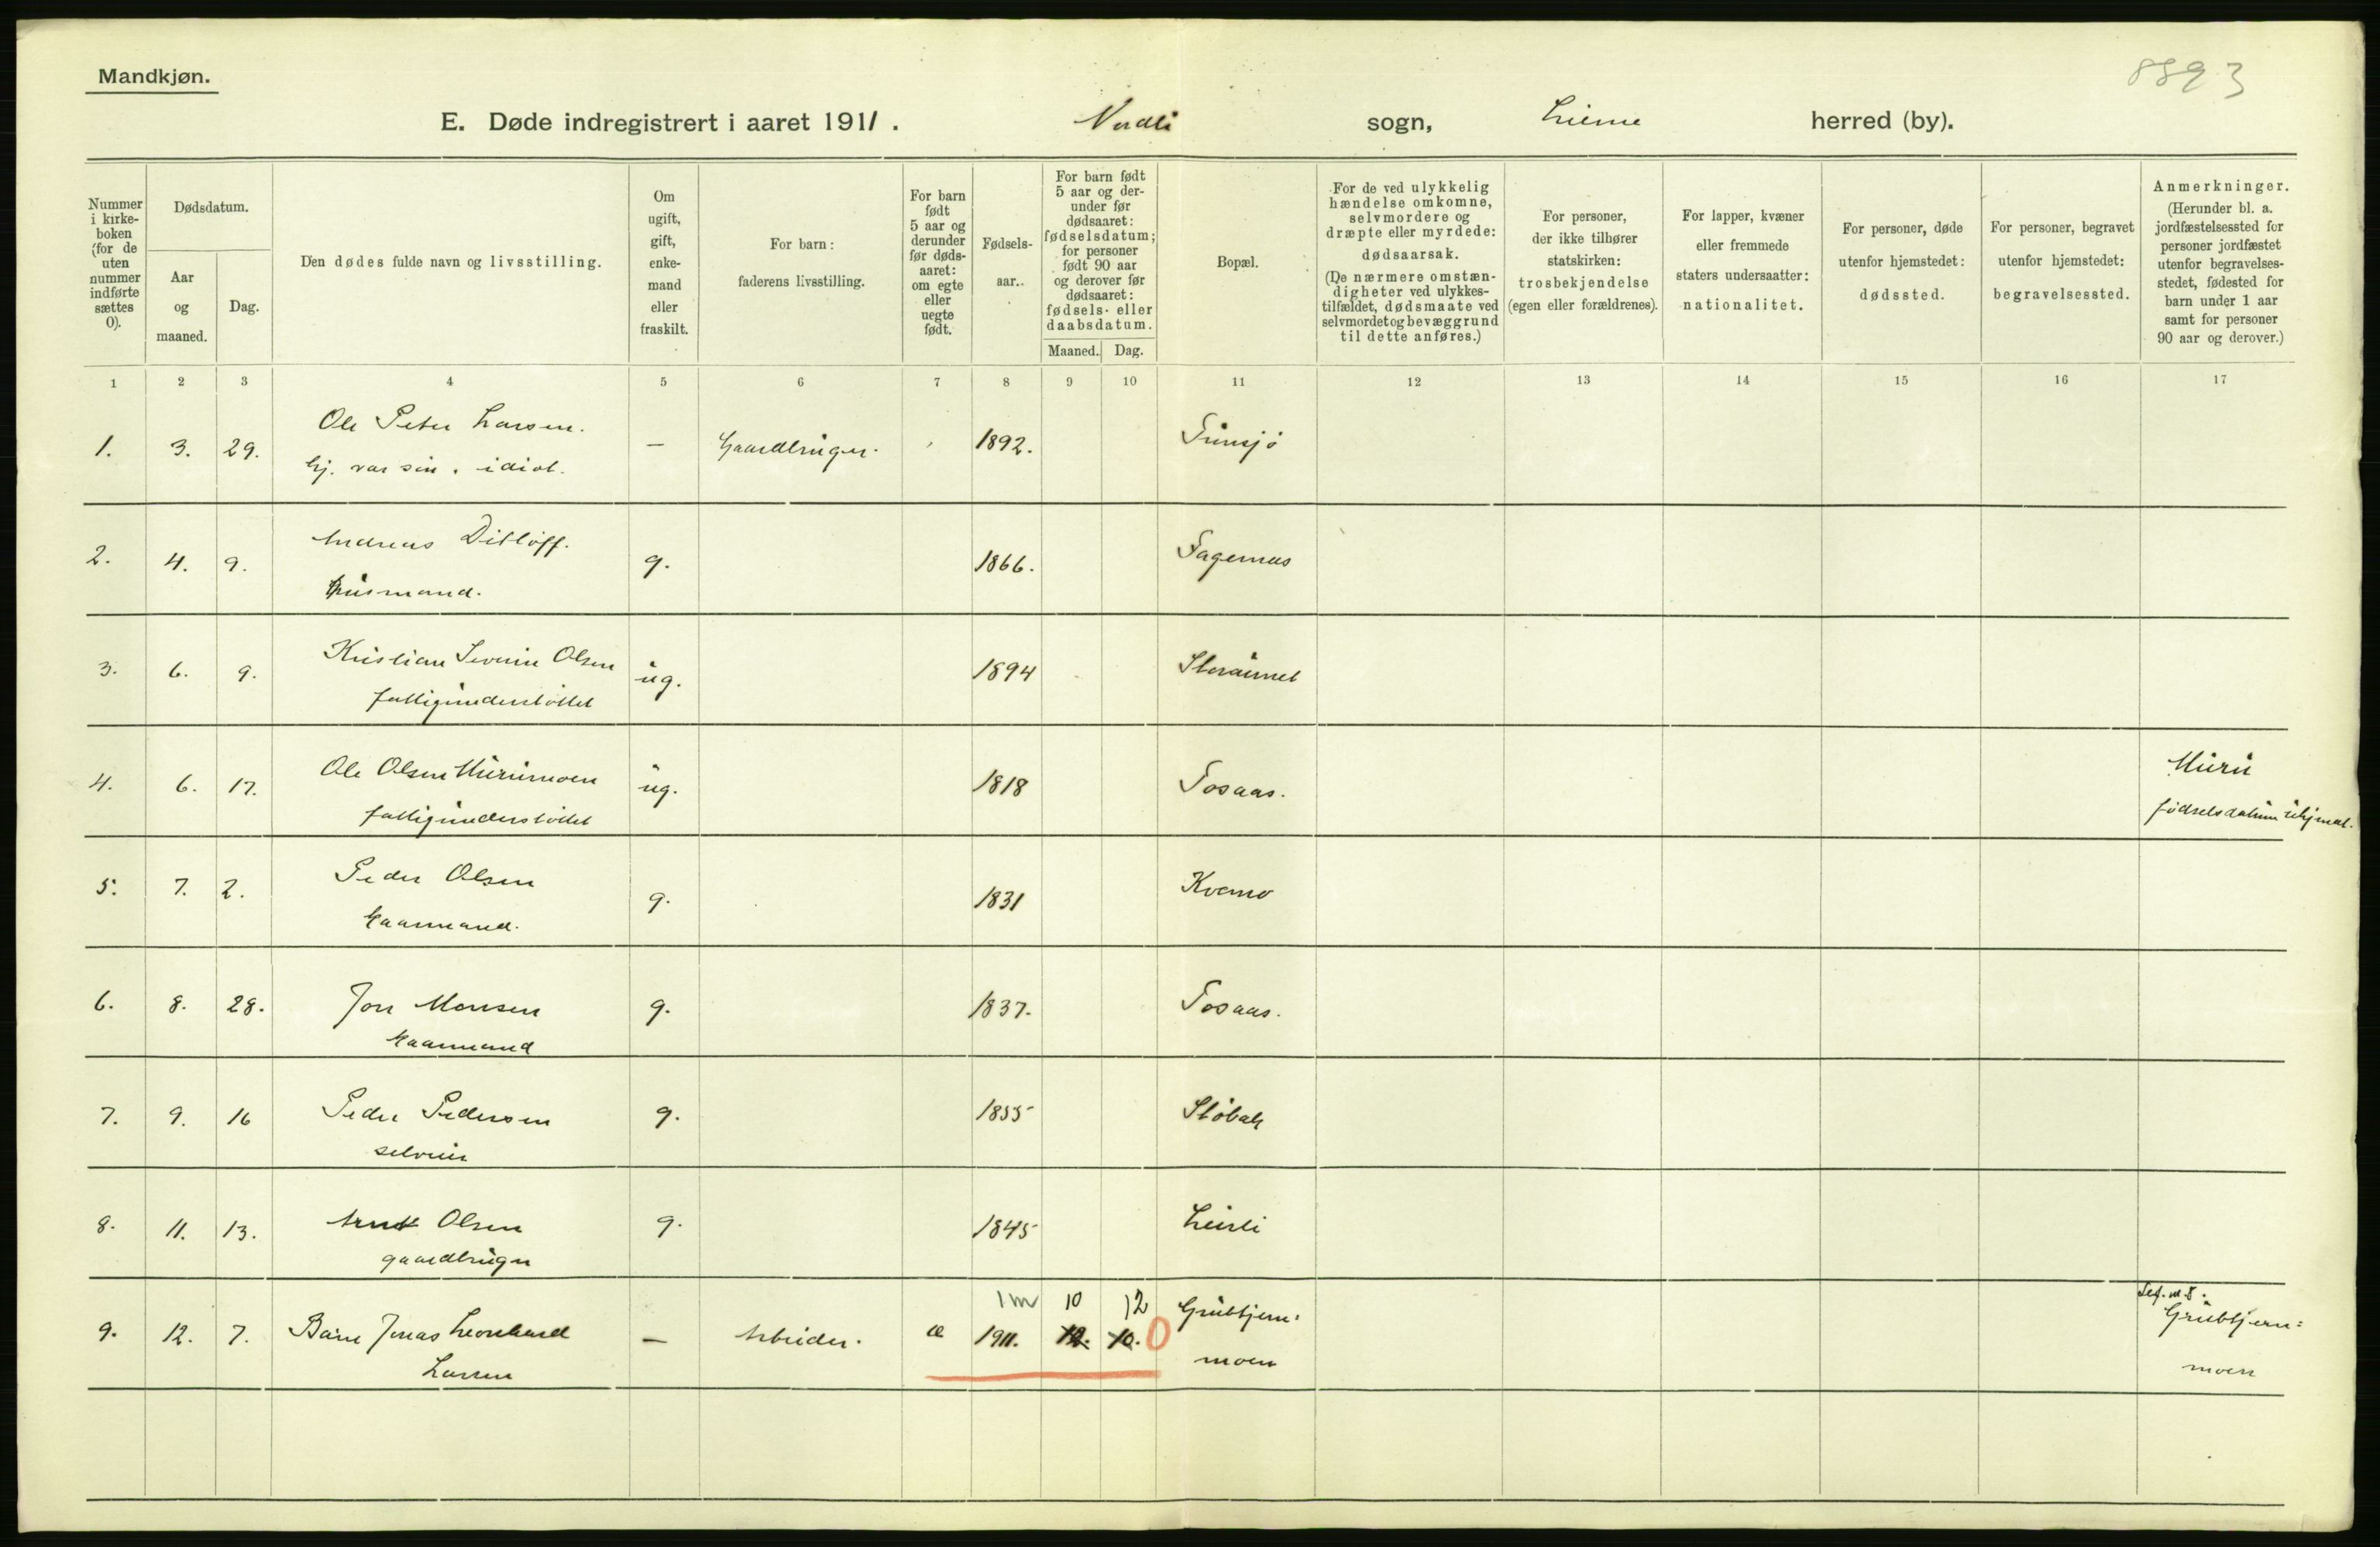 Mandkjøn.
8893
E. Døde indregistrert i aaret 1911. Nordli sogn, Lierne herred (by).
Nummer i kirkeboken (for de uten nummer indførte sættes 0).
Dødsdatum.
Aar og maaned.
Dag.
Den dødes fulde navn og livsstilling.
Om ugift, gift, enkemand eller fraskilt.
For barn: faderens livsstilling.
For barn født 5 aar og derunder før dødsaaret: om egte eller uegte født.
Fødselsaar.
For barn født 5 aar og derunder før dødsaaret: fødselsdatum; for personer født 90 aar og derover før dødsaaret: fødsels- eller daabsdatum.
Maaned. Dag.
Bopæl.
For de ved ulykkelig hændelse omkomne, selvmordere og dræpte eller myrdede: dødsaarsak. (De nærmere omstændigheter ved ulykkestilfældet, dødsmaate ved selvmordet og bevæggrund til dette anføres.)
For personer, der ikke tilhører statskirken: trosbekjendelse (egen eller forældrenes).
For lapper, kvæner eller fremmede staters undersaatter: nationalitet.
For personer, døde utenfor hjemstedet: dødssted.
For personer, begravet utenfor hjemstedet: begravelsessted.
Anmerkninger. (Herunder bl. a. jordfæstelsessted for personer jordfæstet utenfor begravelsesstedet, fødested for barn under 1 aar samt for personer 90 aar og derover.)
1 2 3 4 5 6 7 8 9 10 11 12 13 14 15 16 17
1. 3. 29. Ole Peter Larsen. — Gaardbruger. 1892. Tunsjö
hj. var sin. idiot.
2. 4. 9. Andreas Ditloff. g. 1866. Fagernes
husmand.
3. 6. 9. Kristian Severin Olsen ug. 1894
fattigunderstöttet
4. 6. 17. Ole Olsen Murumoen ug. 1818 Tosaas. Muru
fattigunderstöttet födselsdatum ubjent.
5. 7. 2. Peder Olsen g. 1831 Kvemo
kaarmand.
6. 8. 28. Jon Monsen g. 1837. Tosaas.
kaarmand
7. 9. 16 Peder Pedersen g. 1855
selveier
8. 11. 13. Arnt Olsen g. 1845
gaardbruger
1 m 10 12
9. 12. 7. Jonas Leonhard — Arbeider. 1911. 12. 10. 0 Grubtjern=
Larsen moen
Grubtjern=
moen